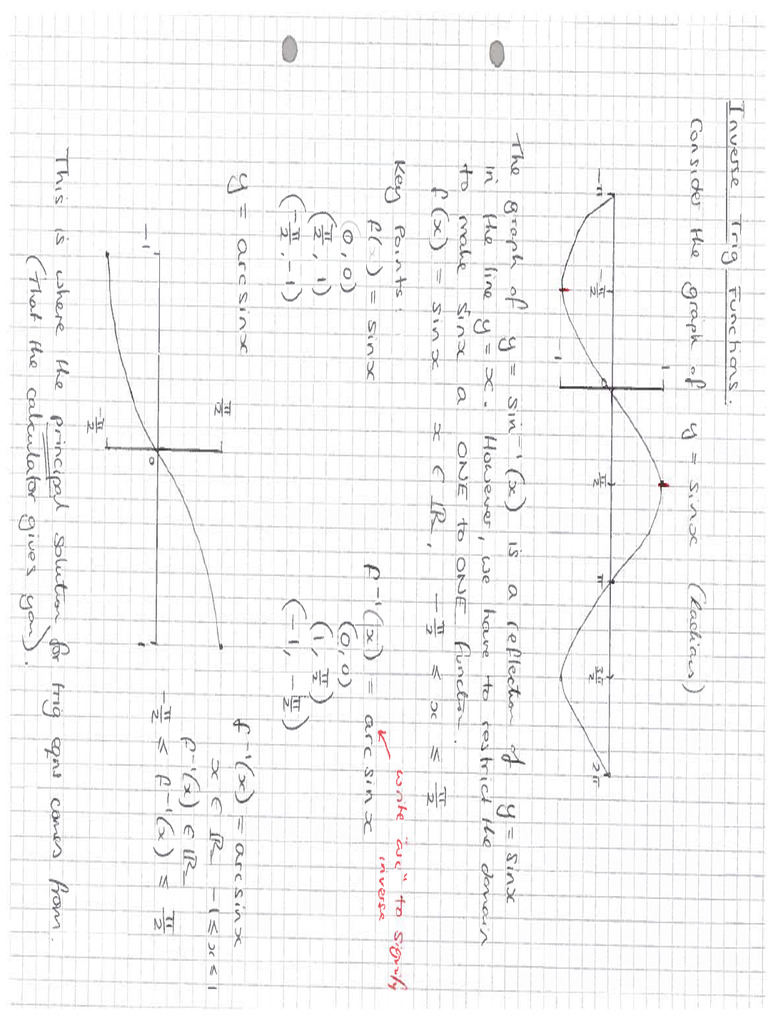 Inverse Trig Functions.
Consider the graph of y = sinx (Radians)
1
-π -π/2 0 π/2 π 3π/2 2π
-1
The graph of y = sin⁻¹(x) is a reflection of y = sinx
in the line y = x. However, we have to restrict the domain
to make sinx a ONE to ONE function.
f(x) = sinx x ∈ ℝ, -π/2 ≤ x ≤ π/2
Key Points:
f(x) = sinx f⁻¹(x) = arcsinx
write "arc" to signify
inverse
(0,0) (0,0)
(π/2, 1) (1, π/2)
(-π/2, -1) (-1, -π/2)
y = arcsinx
f⁻¹(x) = arcsinx
x ∈ ℝ -1 ≤ x ≤ 1
f⁻¹(x) ∈ ℝ
-π/2 ≤ f⁻¹(x) ≤ π/2
π/2
-1 0 1
-π/2
This is where the principal solution for trig eqns comes from.
(That the calculator gives you).